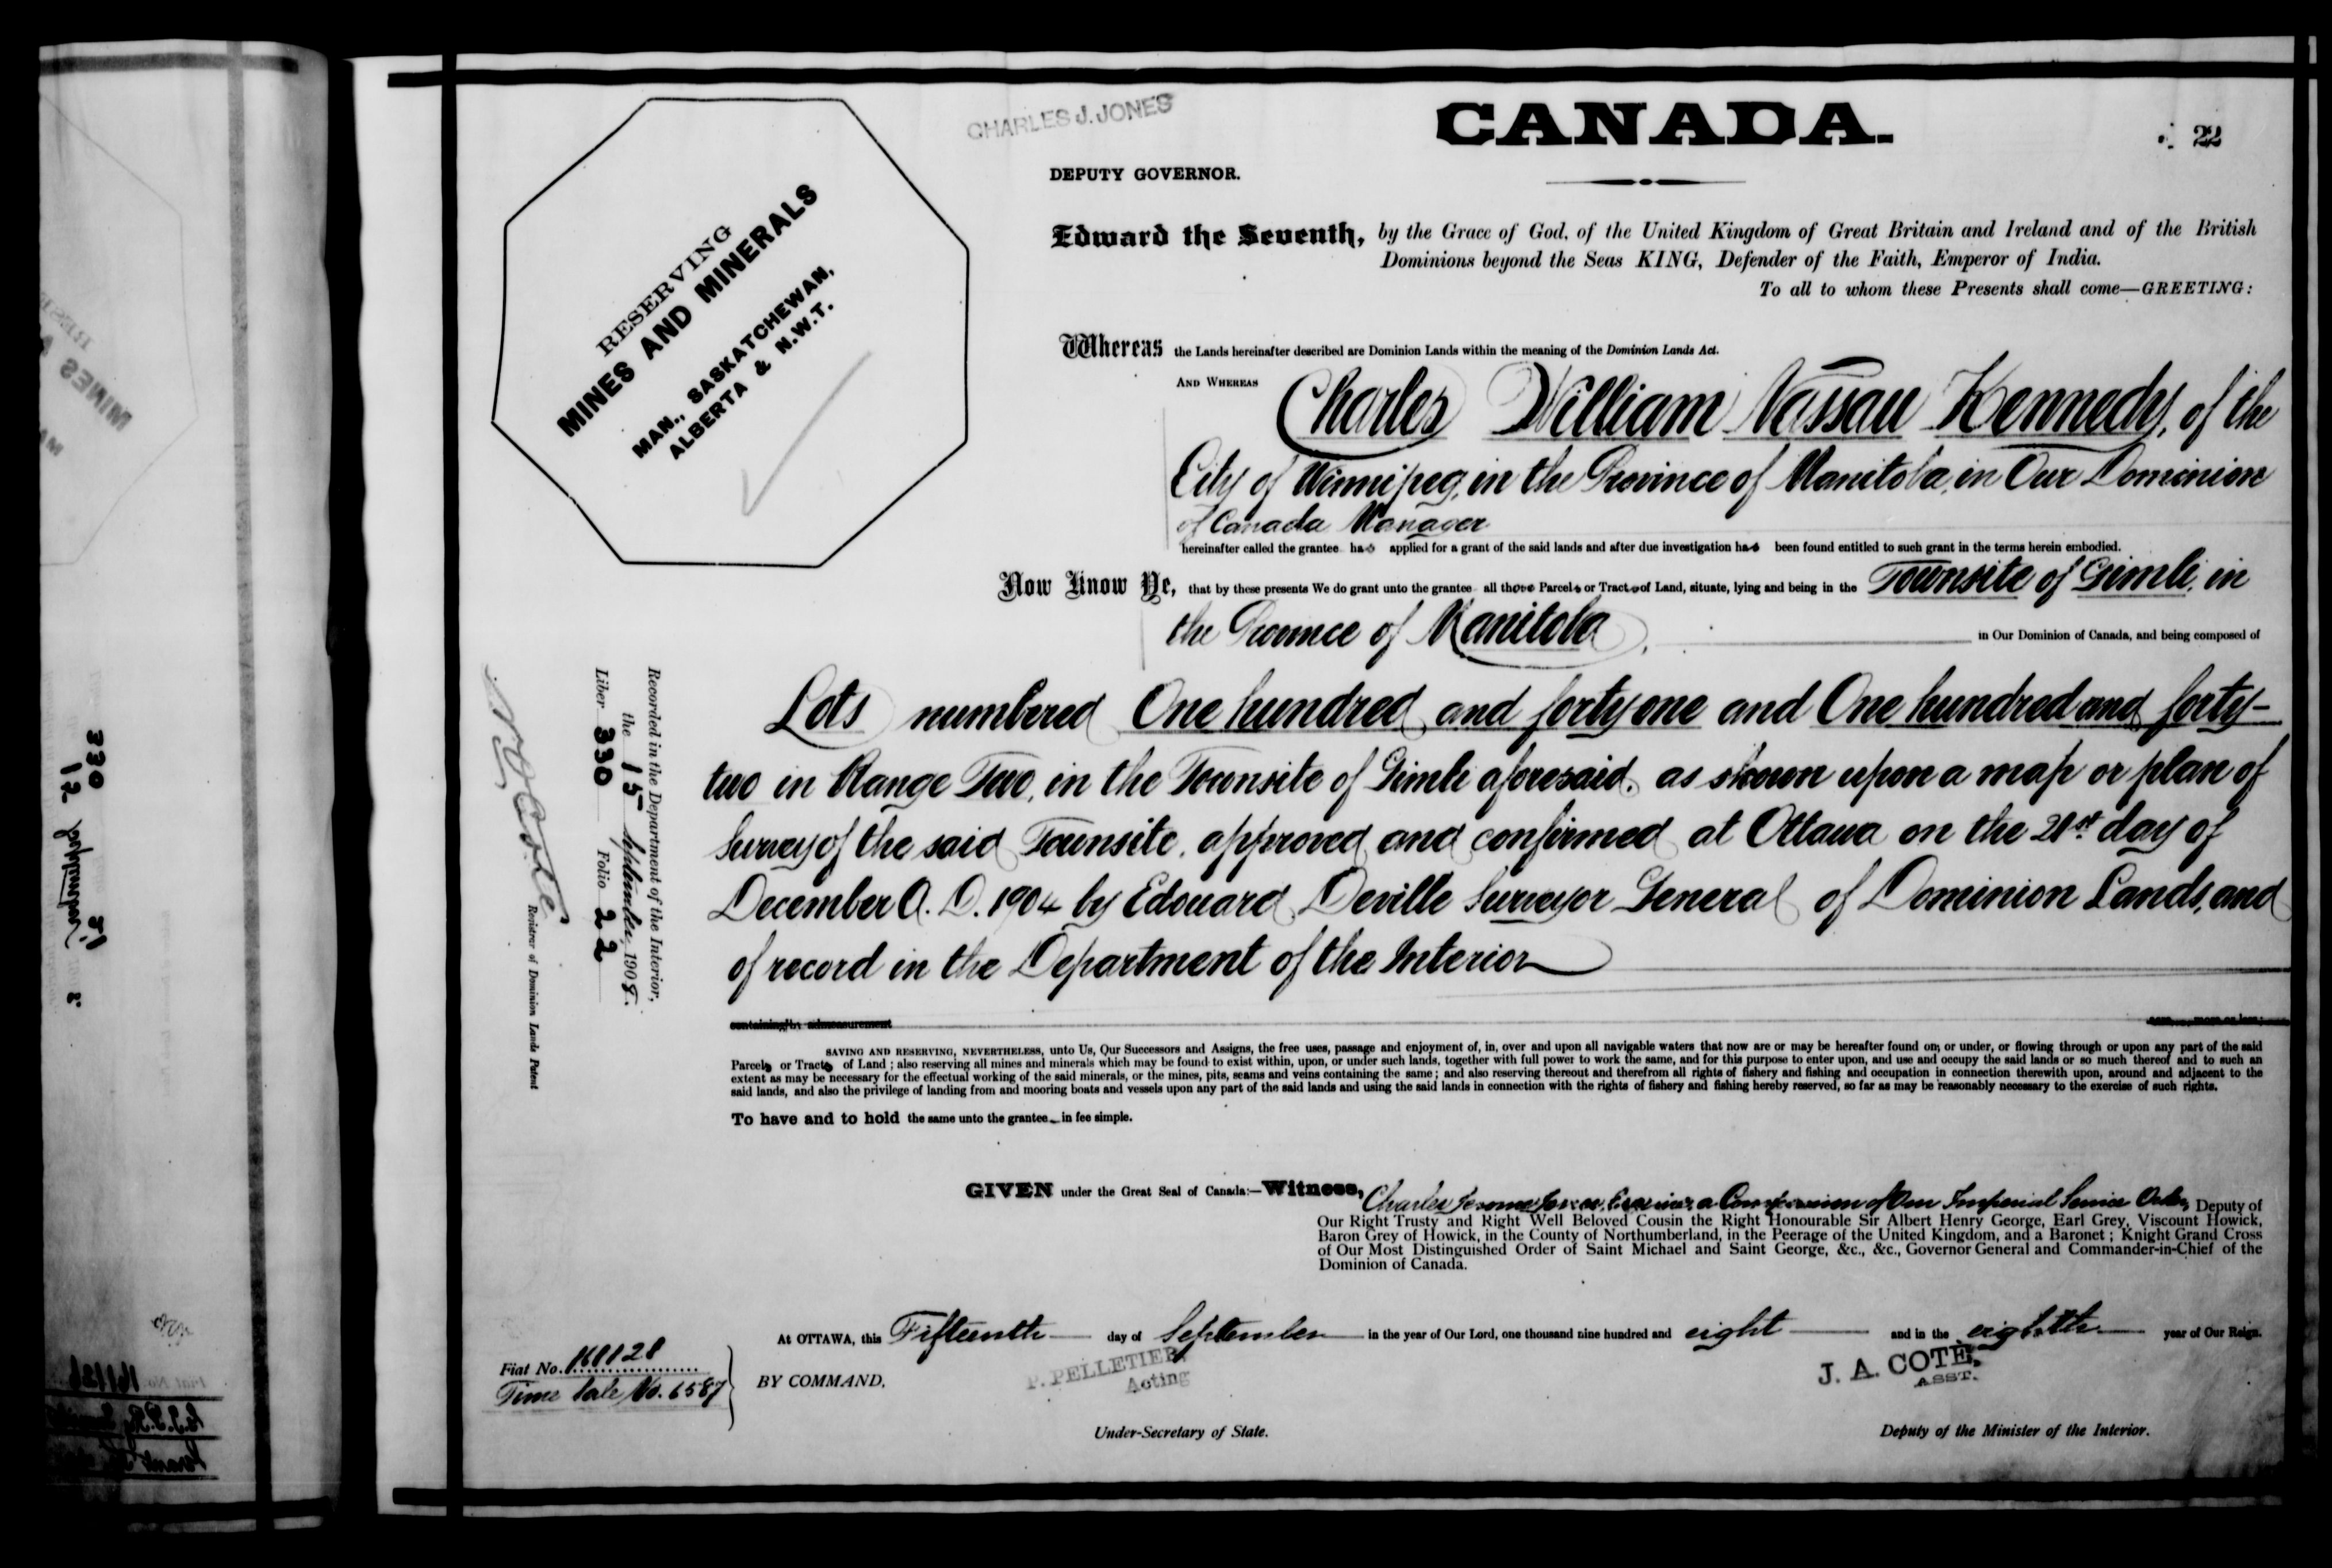 CHARLES J. JONES
CANADA.
22
DEPUTY GOVERNOR.
RESERVING
MINES AND MINERALS
MAN., SASKATCHEWAN,
ALBERTA & N.W.T.
Edward the Seventh, by the Grace of God, of the United Kingdom of Great Britain and Ireland and of the British
Dominions beyond the Seas KING, Defender of the Faith, Emperor of India.
To all to whom these Presents shall come—GREETING:
Whereas the Lands hereinafter described are Dominion Lands within the meaning of the Dominion Lands Act.
AND WHEREAS Charles William Nassau Kennedy, of the
City of Winnipeg, in the Province of Manitoba, in Our Dominion
of Canada Manager
hereinafter called the grantee has applied for a grant of the said lands and after due investigation has been found entitled to such grant in the terms herein embodied.
Now Know Ye, that by these presents We do grant unto the grantee all those Parcels or Tracts of Land, situate, lying and being in the Townsite of Gimli, in
the Province of Manitoba, in Our Dominion of Canada, and being composed of
Lots numbered One hundred and forty one and One hundred and forty-
two in Range Two, in the Townsite of Gimli aforesaid, as shown upon a map or plan of
Survey of the said Townsite, approved and confirmed at Ottawa on the 21st day of
December A. D. 1904 by Edouard Deville Surveyor General of Dominion Lands, and
of record in the Department of the Interior
containing by admeasurement
more or less;
SAVING AND RESERVING, NEVERTHELESS, unto Us, Our Successors and Assigns, the free uses, passage and enjoyment of, in, over and upon all navigable waters that now are or may be hereafter found on, or under, or flowing through or upon any part of the said
Parcels or Tracts of Land ; also reserving all mines and minerals which may be found to exist within, upon, or under such lands, together with full power to work the same, and for this purpose to enter upon, and use and occupy the said lands or so much thereof and to such an
extent as may be necessary for the effectual working of the said minerals, or the mines, pits, seams and veins containing the same ; and also reserving thereout and therefrom all rights of fishery and fishing and occupation in connection therewith upon, around and adjacent to the
said lands, and also the privilege of landing from and mooring boats and vessels upon any part of the said lands and using the said lands in connection with the rights of fishery and fishing hereby reserved, so far as may be reasonably necessary to the exercise of such rights.
To have and to hold the same unto the grantee in fee simple.
Recorded in the Department of the Interior,
the 15 September 1908.
Liber 330 Folio 22
Registrar of Dominion Lands Patent
GIVEN under the Great Seal of Canada:—Witness, Charles Jerome Jones, Esquire, a Companion of Our Imperial Service Order, Deputy of
Our Right Trusty and Right Well Beloved Cousin the Right Honourable Sir Albert Henry George, Earl Grey, Viscount Howick,
Baron Grey of Howick, in the County of Northumberland, in the Peerage of the United Kingdom, and a Baronet ; Knight Grand Cross
of Our Most Distinguished Order of Saint Michael and Saint George, &c., &c., Governor General and Commander-in-Chief of the
Dominion of Canada.
At OTTAWA, this Fifteenth day of September in the year of Our Lord, one thousand nine hundred and eight and in the eighth year of Our Reign.
Fiat No. 161128
Time Sale No. 6587
BY COMMAND,
P. PELLETIER,
Acting
J. A. COTE,
ASST.
Under-Secretary of State.
Deputy of the Minister of the Interior.